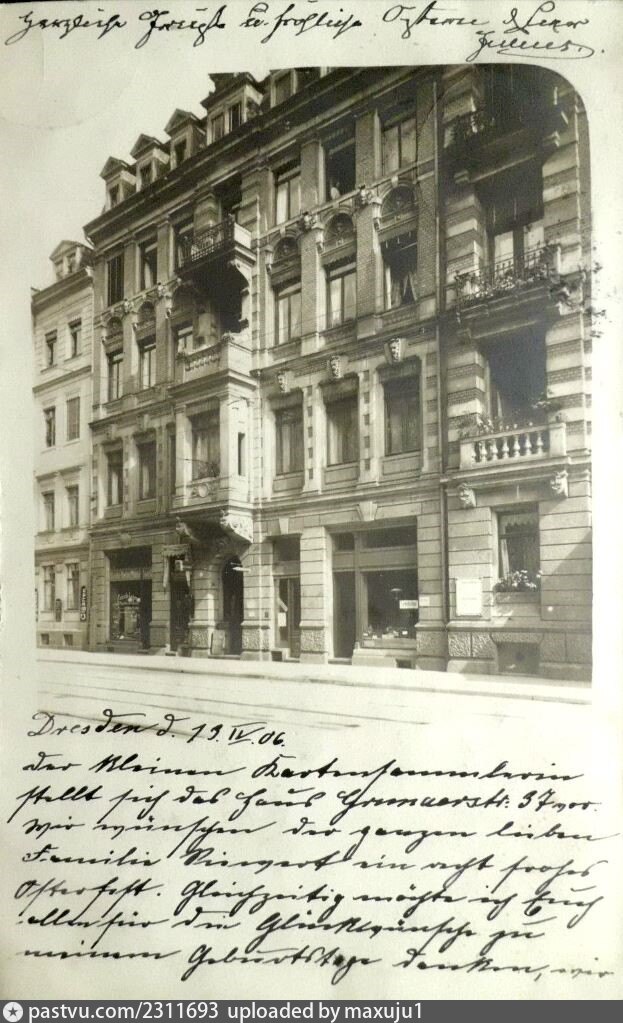 Herzliche Grüsse u. fröhliche Ostern
Julius.
Dresden d. 13. IV. 06.
Der kleinen Kartensammlerin
stellt sich das Haus Grunaerstr. 37 vor.
Wir wünschen der ganzen lieben
Familie ein recht frohes
Osterfest. Gleichzeitig möchte ich Euch
allen für die Glückwünsche zu
meinem Geburtstage danken, wir
pastvu.com/2311693 uploaded by maxuju1